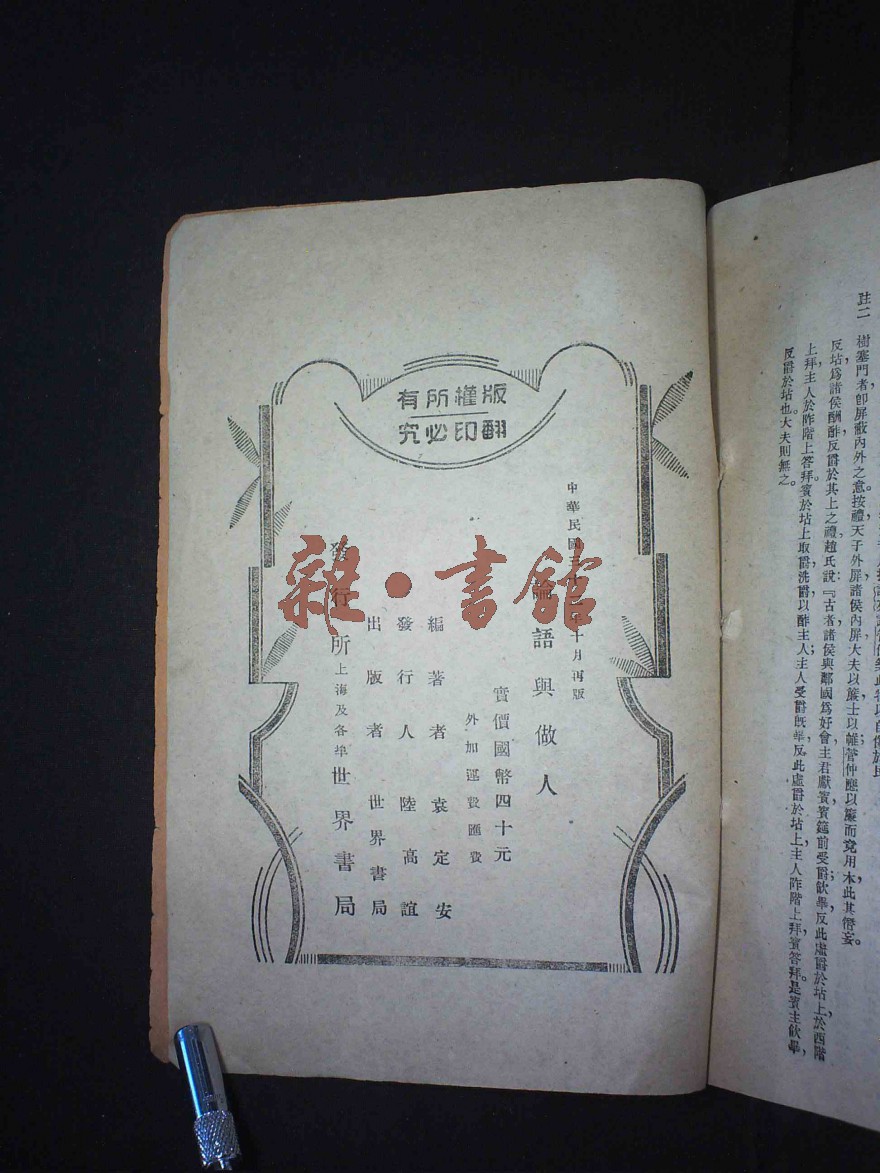 註二 樹塞門者卽屏蔽內外之意。按禮天子外屏諸侯內屏大夫以簾士以帷管仲應以簾而竟用木此其僭妄。
反坫爲諸侯酬酢反爵於其上之禮趙氏說：『古者諸侯與鄰國爲好會主君獻賓賓筵前受爵飮畢反此虛爵於坫上於西階
上拜主人於阼階上答拜賓於坫上取爵洗爵以酢主人主人受爵飮畢反此虛爵於坫上主人阼階上拜賓答拜。是賓主飮畢，
反爵於坫也。大夫則無之。
版權所有
翻印必究
中華民國三十 年十月再版
論語與做人
實價國幣四十元
外加運費匯費
編著者 袁定安
發行人 陸高誼
出版者 世界書局
發行所 上海及各埠 世界書局
雜·書館